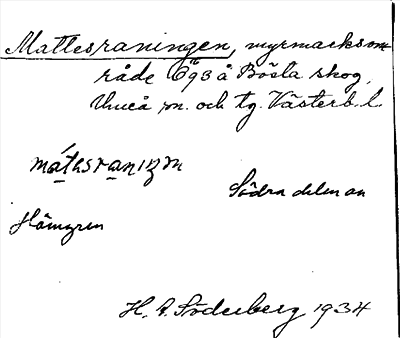 Mattesraningen, myrmarksom
råde Ö 93 å Bösta skog,
Umeå sn. och tg. Västerb. l.
mátęsranıŋən
Södra delen av
Hömyren
H. A. Söderberg 1934